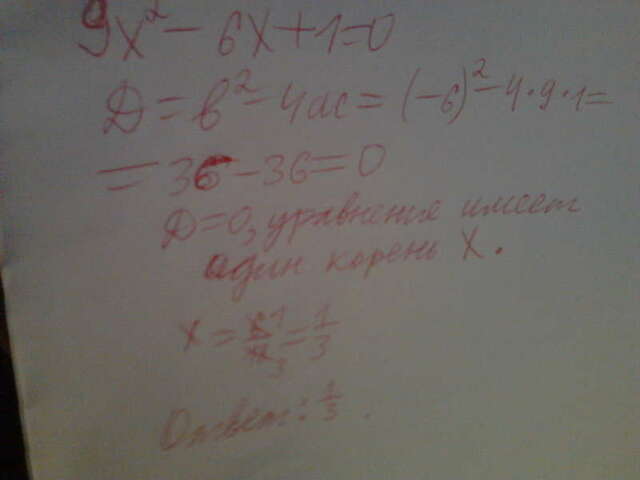 9x² - 6x + 1 = 0
D = b² - 4ac = (-6)² - 4·9·1 =
= 36 - 36 = 0
D = 0, уравнение имеет
один корень x.
x = 6/18 = 1/3
Ответ: 1/3.